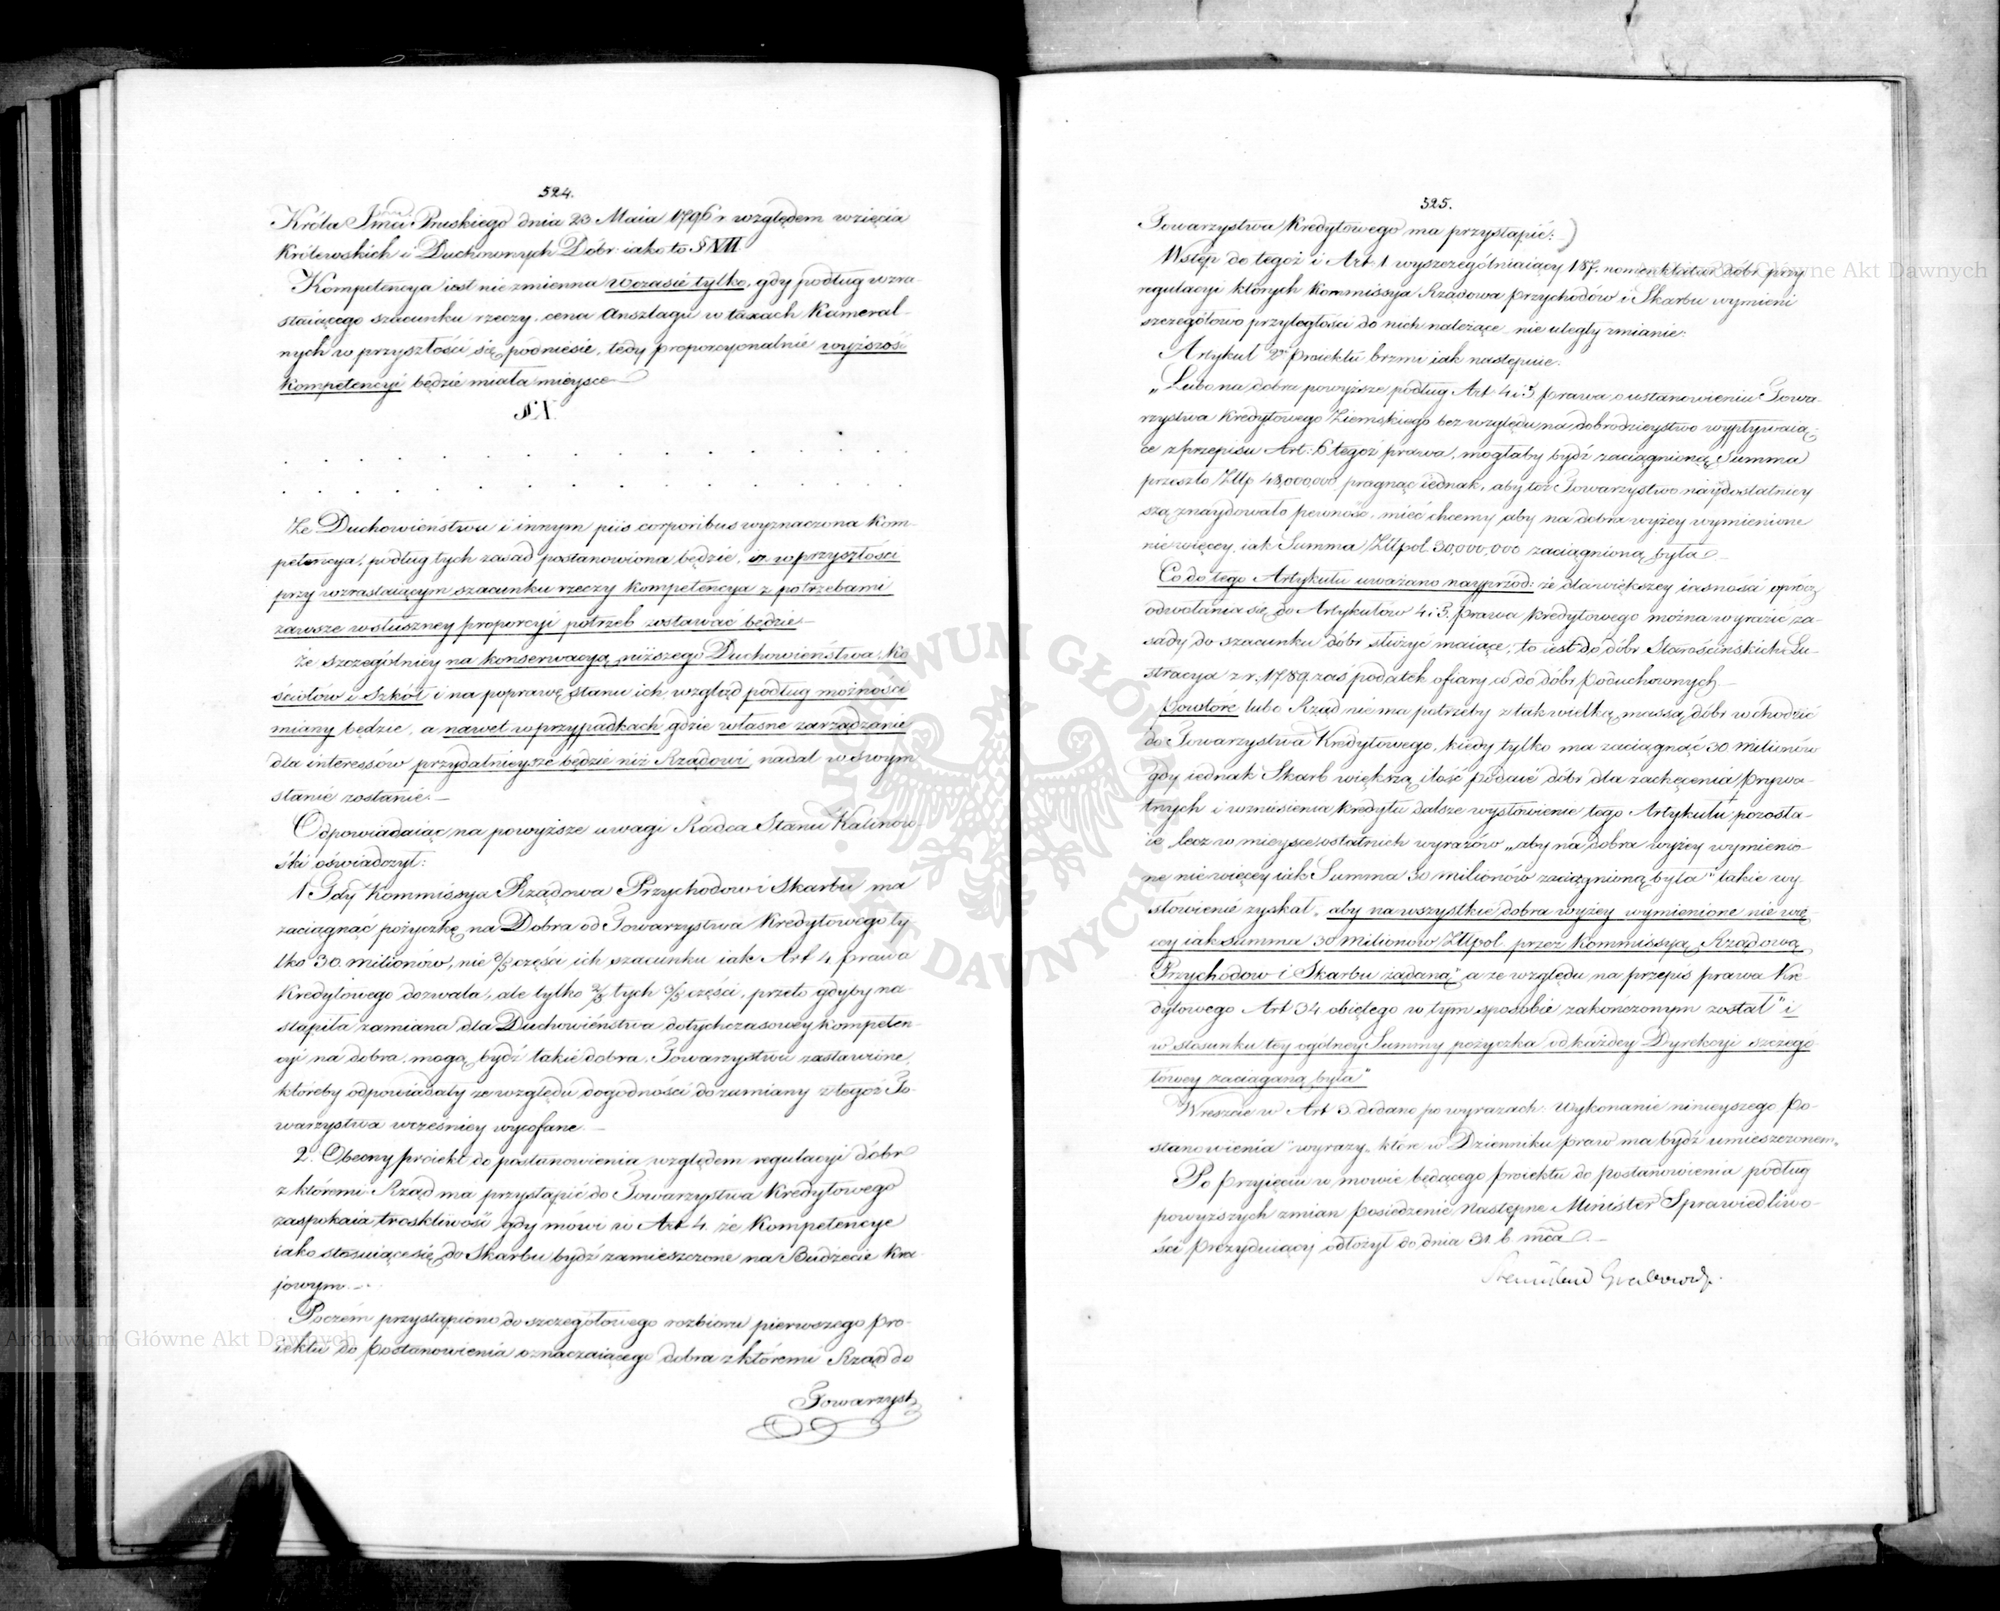 524.
Króla Jmci Pruskiego dnia 23 Maia 1796 r. względem wzięcia
Królewskich i Duchownych Dóbr iako to § VII
Kompetencya iest niezmienna wczasie tylko, gdy podług wzra-
staiącego szacunku rzeczy, cena Anszlagu w taxach Kameral-
nych w przyszłości się podniesie, tedy proporcyonalnie wyższość
Kompetencyi będzie miała mieysce
§ X.
. . . . . . . . . . . . . . . .
. . . . . . . . . . . . . . . .
Że Duchowieństwu i innym piis corporibus wyznaczona Kom-
petencya, podług tych zasad postanowiona będzie, iż w przyszłości
przy wzrastaiącym szacunku rzeczy Kompetencya z potrzebami
zawsze w słuszney proporcyi potrzeb zostawać będzie.—
Że szczególniey na konserwacyą niższego Duchowieństwa, Ko-
ściołów i Szkół i na poprawę stanu ich wzgląd podług możności
miany będzie, a nawet w przypadkach gdzie własne zarządzanie
dla interessów przydatnieysze będzie niż Rządowi, nadal w swym
stanie zostanie.—
Odpowiadaiąc na powyższe uwagi Radca Stanu Kalinow-
ski oświadczył:
1 Gdy Kommissya Rządowa Przychodów i Skarbu ma
zaciągnąć pożyczkę na Dobra od Towarzystwa Kredytowego ty-
lko 30. milionów, nie 3/5 części ich szacunku iak Art 4 prawa
Kredytowego dozwala, ale tylko 2/3 tych 3/5 części, przeto gdyby na-
stąpiła zamiana dla Duchowieństwa dotychczasowey kompeten-
cyi na dobra, mogą bydź takie dobra, Towarzystwu zastawione
któreby odpowiadały ze względu dogodności do zamiany z tegoż To-
warzystwa wcześniey wycofane.—
2. Obecny proiekt do postanowienia względem regulacyi dóbr
z któremi Rząd ma przystąpić do Towarzystwa Kredytowego
zaspokaia troskliwość gdy mówi w Art 4. że Kompetencye
iako stosuiące się do Skarbu bydź zamieszczone na Budżecie Kra-
jowym.—
Poczém przystąpiono do szczegółowego rozbioru pierwszego Pro-
iektu do Postanowienia oznaczaiącego dobra z któremi Rząd do
Towarzyst
525.
Towarzystwa Kredytowego ma przystąpić:
Wstęp do tegoż i Art 1 wyszczególniaiący 187. nomenklatur dóbr przy
regulacyi których Kommissya Rządowa Przychodów i Skarbu wymieni
szczegółowo przyległości do nich należące nie uległy zmianie:
Artykuł 2gi Proiektu brzmi iak następuie.
„Lubo na dobra powyższe podług Art 4 i 5 prawa o ustanowieniu Towa-
rzystwa Kredytowego Ziemskiego bez względu na dobrodzieystwo wypływaią-
ce z przepisu Art: 6 tegoż prawa, mogłaby bydź zaciągnioną Summa
przeszło Złlp 48,000,000 pragnąc iednak, aby toż Towarzystwo naydostatniey
szą znaydowało pewność, mieć chcemy aby na dobra wyżey wymienione
nie więcey, iak Summa Złlpol. 30,000,000 zaciągnioną była
Co do tego Artykułu uważano nayprzód: że dla większey iasności oprócz
odwołania się do Artykułów 4 i 5. Prawa Kredytowego można wyrazić za-
sady do szacunku dóbr służyć maiące, to iest do dóbr Starościńskich Lu-
stracya z r. 1789. zaś podatek ofiary co do dóbr Poduchownych
Powtóré lubo Rząd nie ma potrzeby z tak wielką massą dóbr wchodzić
do Towarzystwa Kredytowego, kiedy tylko ma zaciągnąć 30 milionów
gdy iednak Skarb większą ilość podaie dóbr dla zachęcenia Prywa-
tnych i wzniesienia kredytu dalsze wysłowienie tego Artykułu pozosta-
ie, lecz w mieysce ostatnich wyrazów „aby na dobra wyżey wymienio-
ne nie więcey iak Summa 30 milionów zaciągnioną była" takie wy-
słówienie zyskał, aby na wszystkie dobra wyżey wymienione nie wię-
cey iak summa 30 milionów Złlpol. przez Kommissyą Rządową
Przychodów i Skarbu żądaną" a ze względu na przepis prawa Kre-
dytowego Art 34 obiętego w tym sposobie zakończonym został" i
w stosunku tey ogólney Summy pożyczka od każdey Dyrekcyi szczegó-
łowey zaciąganą była"
Wreszcie w Art 3. dodano po wyrazach: Wykonanie ninieyszego Po-
stanowienia" wyrazy „które w Dzienniku Praw ma bydź umieszczonem„
Po Przyięciu w mowie będącego Proiektu do Postanowienia podług
powyższych zmian Posiedzenie następne Minister Sprawiedliwo-
ści Prezyduiący odłożył do dnia 31 b. mca.—
Stanisław Grabowski
Archiwum Główne Akt Dawnych
Archiwum Główne Akt Dawnych
ARCHIWUM GŁÓWNE AKT DAWNYCH